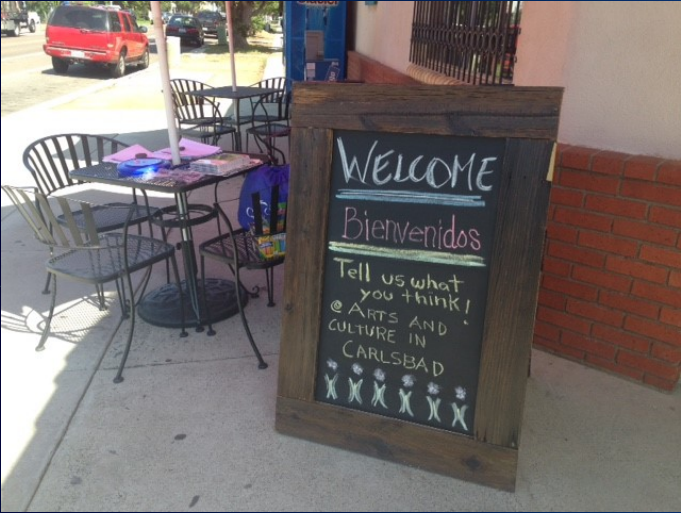 WELCOME
Bienvenidos
Tell us what
you think!
@ ARTS AND
CULTURE IN
CARLSBAD